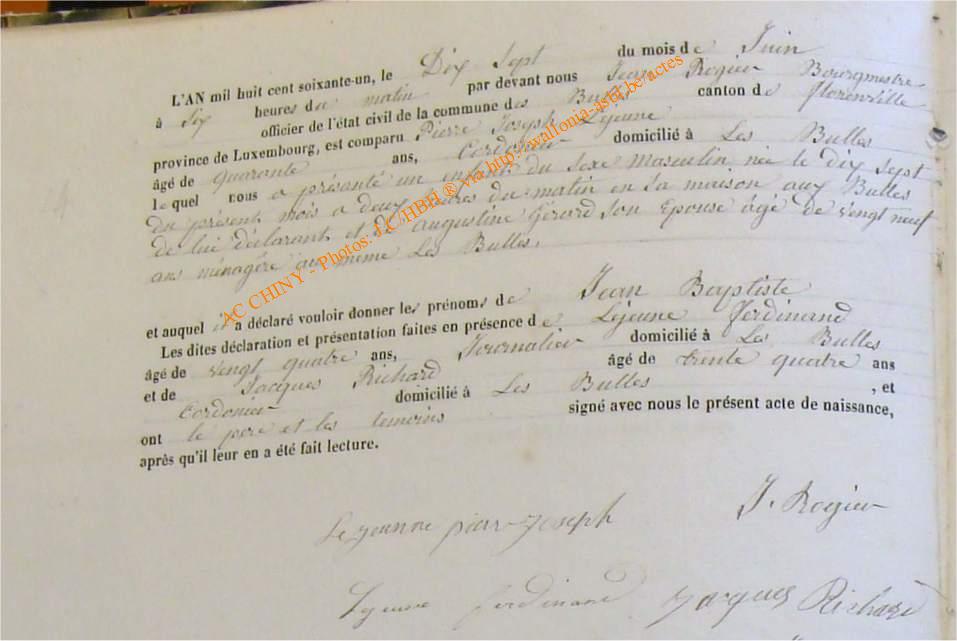 L'AN mil huit cent soixante-un, le Dix Sept du mois de Juin
à Six heures du matin par devant nous Jean Rogier Bourgmestre
officier de l'état civil de la commune des Bulles canton de florenville
province de Luxembourg, est comparu Pierre Joseph Lejeune
âgé de quarante ans, Cordonier domicilié à Les Bulles
lequel nous a présanté un enfant du Sexe Masculin née le dix sept
du présent mois a deux heures du matin en sa maison aux Bulles
de lui déclarant et de augustine Gérard son Epouse âgé de vingt neuf
ans ménagére au même Les Bulles.
et auquel il a déclaré vouloir donner les prénoms de Jean Baptiste
Les dites déclaration et présentation faites en présence de Lejeune Ferdinand
âgé de vingt quatre ans, Journalier domicilié à Les Bulles
et de Jacques Richard âgé de trente quatre ans
Cordonier domicilié à Les Bulles , et
ont le pere et les temoins signé avec nous le présent acte de naissance,
après qu'il leur en a été fait lecture.
J. Rogier
Lejeunne pierr Joseph
Lejeune ferdinand Jacques Richard
AC CHINY - Photos: J.C HBH ® via http://wallonia-asbl.be/actes